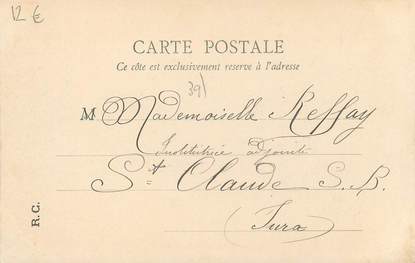 12 €
CARTE POSTALE
Ce côte est exclusivement reserve à l'adresse
39)
M Mademoiselle Reffay
Institutrice adjointe
St Claude S. B.
(Jura)
R. C.